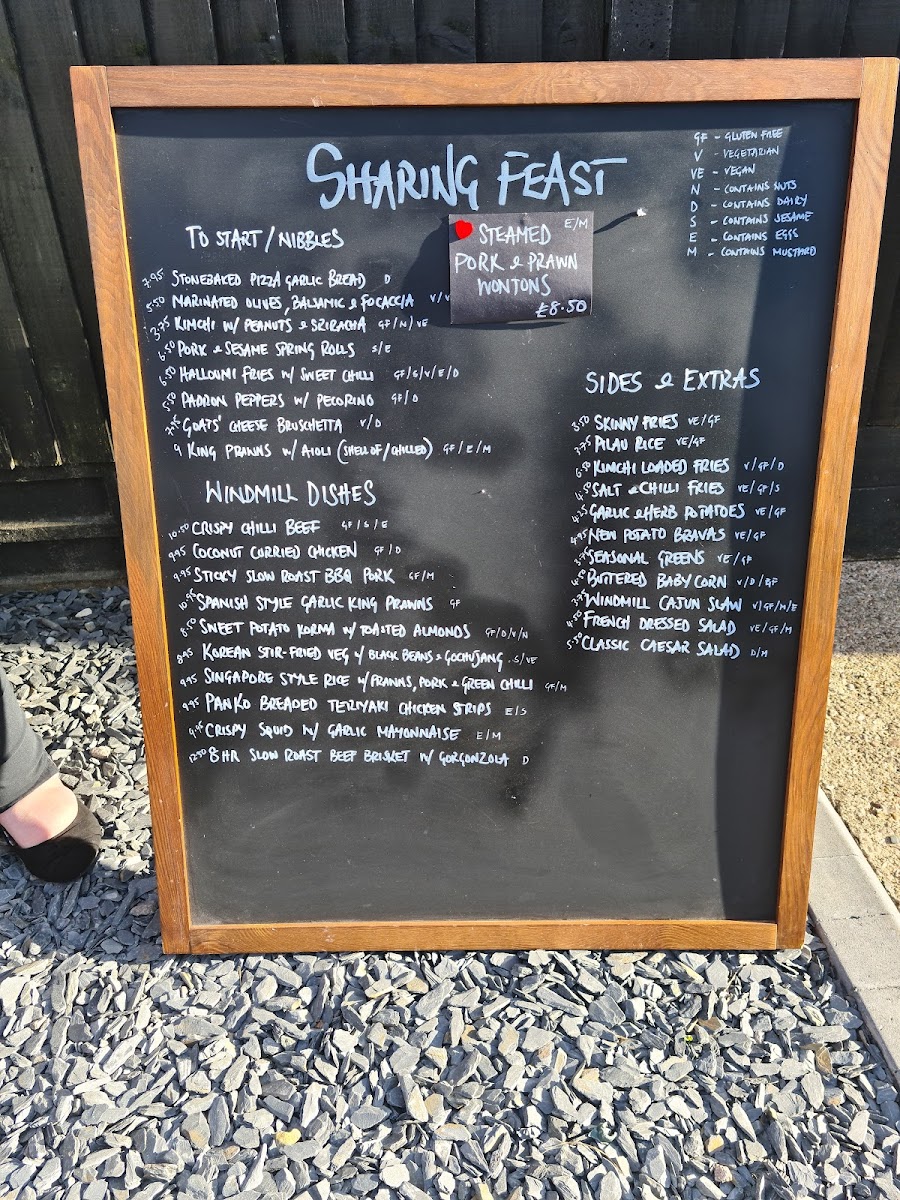 SHARING FEAST
GF - GLUTEN FREE
V - VEGETARIAN
VE - VEGAN
N - CONTAINS NUTS
D - CONTAINS DAIRY
S - CONTAINS SESAME
E - CONTAINS EGGS
M - CONTAINS MUSTARD
E/M
STEAMED
PORK & PRAWN
WONTONS
£8.50
TO START / NIBBLES
7.95 STONEBAKED PIZZA GARLIC BREAD D
5.50 MARINATED OLIVES, BALSAMIC & FOCACCIA V/V
3.75 KIMCHI W/ PEANUTS & SRIRACHA GF/N/VE
6.50 PORK & SESAME SPRING ROLLS S/E
6.50 HALLOUMI FRIES W/ SWEET CHILLI GF/S/V/E/D
5.50 PADRON PEPPERS W/ PECORINO GF/D
7.95 GOATS' CHEESE BRUSCHETTA V/D
9 KING PRAWNS W/ AIOLI (SHELL OF/CHILLED) GF/E/M
WINDMILL DISHES
10.50 CRISPY CHILLI BEEF GF/S/E
9.95 COCONUT CURRIED CHICKEN GF/D
9.95 STICKY SLOW ROAST BBQ PORK GF/M
10.95 SPANISH STYLE GARLIC KING PRAWNS GF
8.50 SWEET POTATO KORMA W/ TOASTED ALMONDS GF/D/V/N
8.95 KOREAN STIR-FRIED VEG W/ BLACK BEANS & GOCHUJANG S/VE
9.95 SINGAPORE STYLE RICE W/ PRAWNS, PORK & GREEN CHILLI GF/M
9.95 PANKO BREADED TERIYAKI CHICKEN STRIPS E/S
9.95 CRISPY SQUID W/ GARLIC MAYONNAISE E/M
12.50 8HR SLOW ROAST BEEF BRISKET W/ GORGONZOLA D
SIDES & EXTRAS
3.50 SKINNY FRIES VE/GF
3.75 PILAU RICE VE/GF
6.50 KIMCHI LOADED FRIES V/GF/D
4.50 SALT & CHILLI FRIES VE/GF/S
4.25 GARLIC & HERB POTATOES VE/GF
4.95 NEW POTATO BRAVAS VE/GF
3.75 SEASONAL GREENS VE/GF
BUTTERED BABY CORN V/D/GF
3.95 WINDMILL CAJUN SLAW V/GF/M/E
4.50 FRENCH DRESSED SALAD VE/GF/M
5.50 CLASSIC CAESAR SALAD D/M